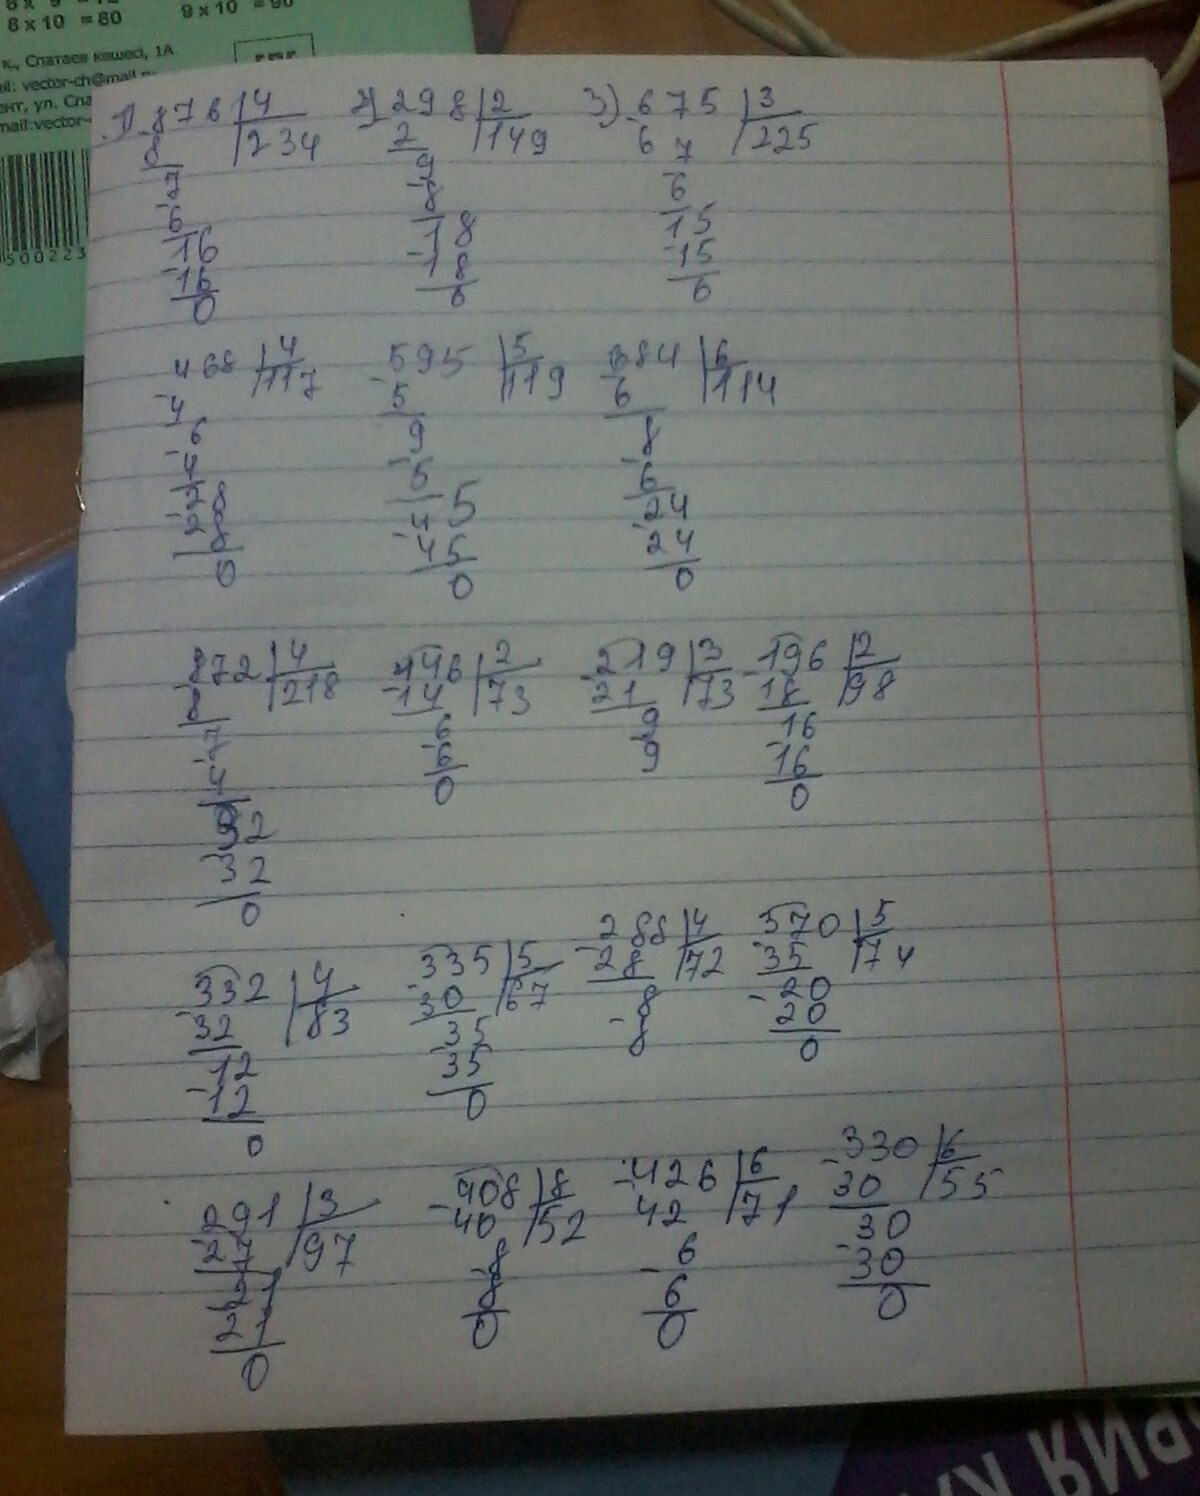 8 x 10 = 80
9 x 10 = 90
к., Спатаев көшесі, 1А
vector-ch@mail
ент, ул. Спа
mail:vector-
500223
1) 876 4 2) 298 2 3) 675 3
8 234 2 149 6 225
7 9 7
6 8 6
16 18 15
16 18 15
0 0 0
468 4 595 5 684 6
4 117 5 119 6 114
6 9 8
4 5 6
28 45 24
28 45 24
0 0 0
872 4 146 2 219 3 196 2
8 218 14 73 21 73 18 98
7 6 9 16
4 6 9 16
32 0 0
32
0
332 4 335 5 288 4 370 5
32 83 30 67 28 72 35 74
12 35 8 20
12 35 8 20
0 0 0
291 3 408 8 426 6 330 6
27 97 40 52 42 71 30 55
21 8 6 30
21 8 6 30
0 0 0 0